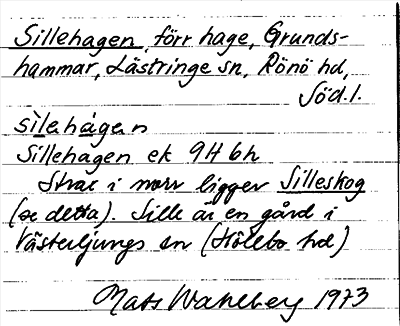 Sillehagen, förr hage, Grunds-
hammar, Lästringe sn, Rönö hd,
Söd.l.
sìlehàgen
Sillehagen ek 9H 6h
Strax i norr ligger Silleskog
(se detta). Sille är en gård i
Västerljungs sn (Hölebo hd)
Mats Wahlberg 1973